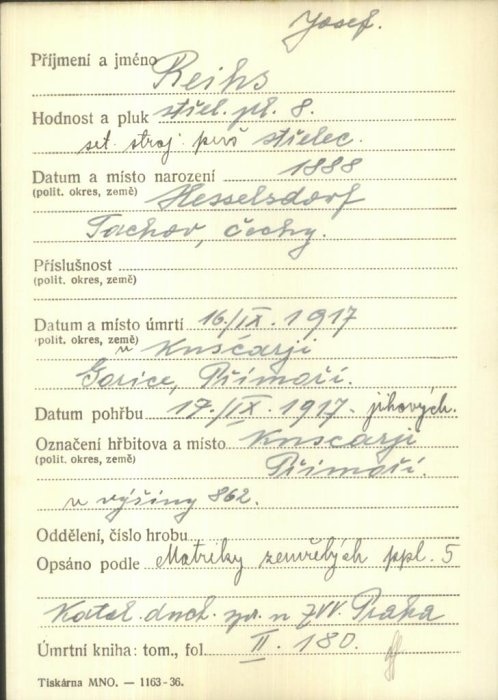 Josef.
Příjmení a jméno Reihs
Hodnost a pluk střel. pl. 8.
set. stroj. puš střelec.
Datum a místo narození 1888
(polit. okres, země) Hesselsdorf
Tachov, Čechy.
Příslušnost
(polit. okres, země)
Datum a místo úmrtí 16/IX. 1917
(polit. okres, země) v Knsćarji
Gorice, Přímoří.
Datum pohřbu 17/IX. 1917. jihových.
Označení hřbitova a místo Knscarji
(polit. okres, země) Přímoří.
v výšiny 862.
Oddělení, číslo hrobu
Opsáno podle Matriky zemřelých ppl. 5
Katol. duch. zpr. u ZVV. Praha
Úmrtní kniha: tom., fol. II. 180.
Tiskárna MNO. — 1163-36.